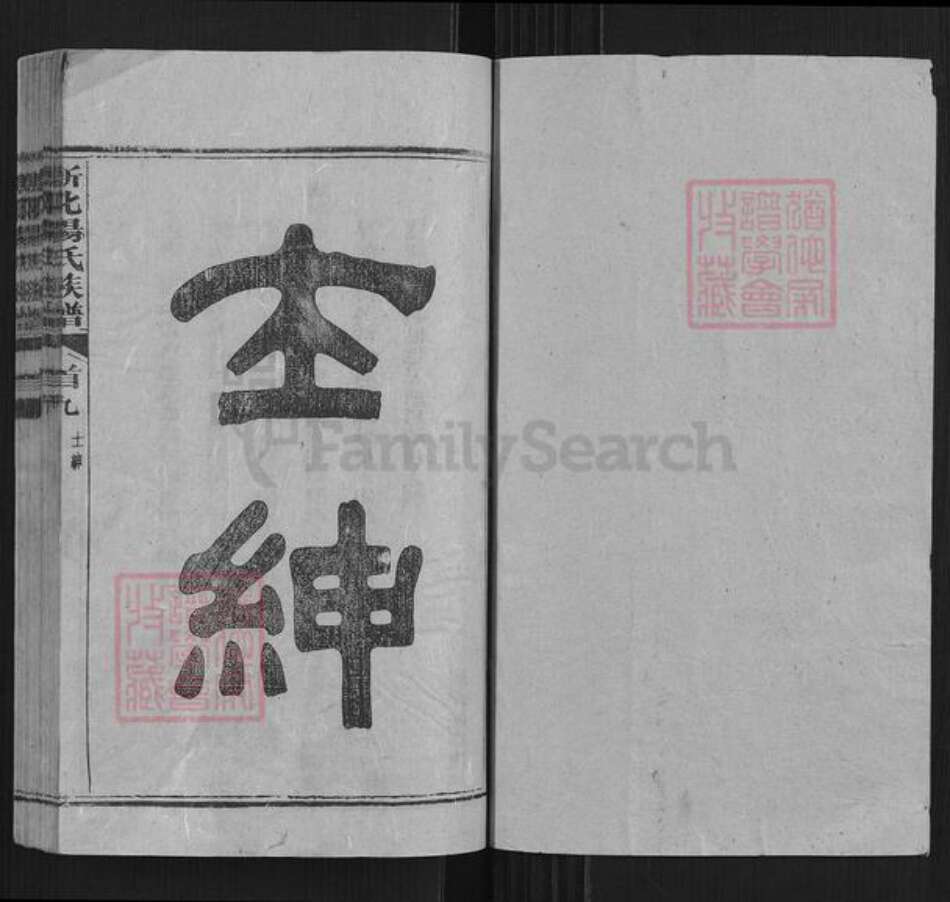 猶他家
譜學會
收藏
士紳
北楊氏族譜
首九
士紳
猶他家
譜學會
收藏
FamilySearch